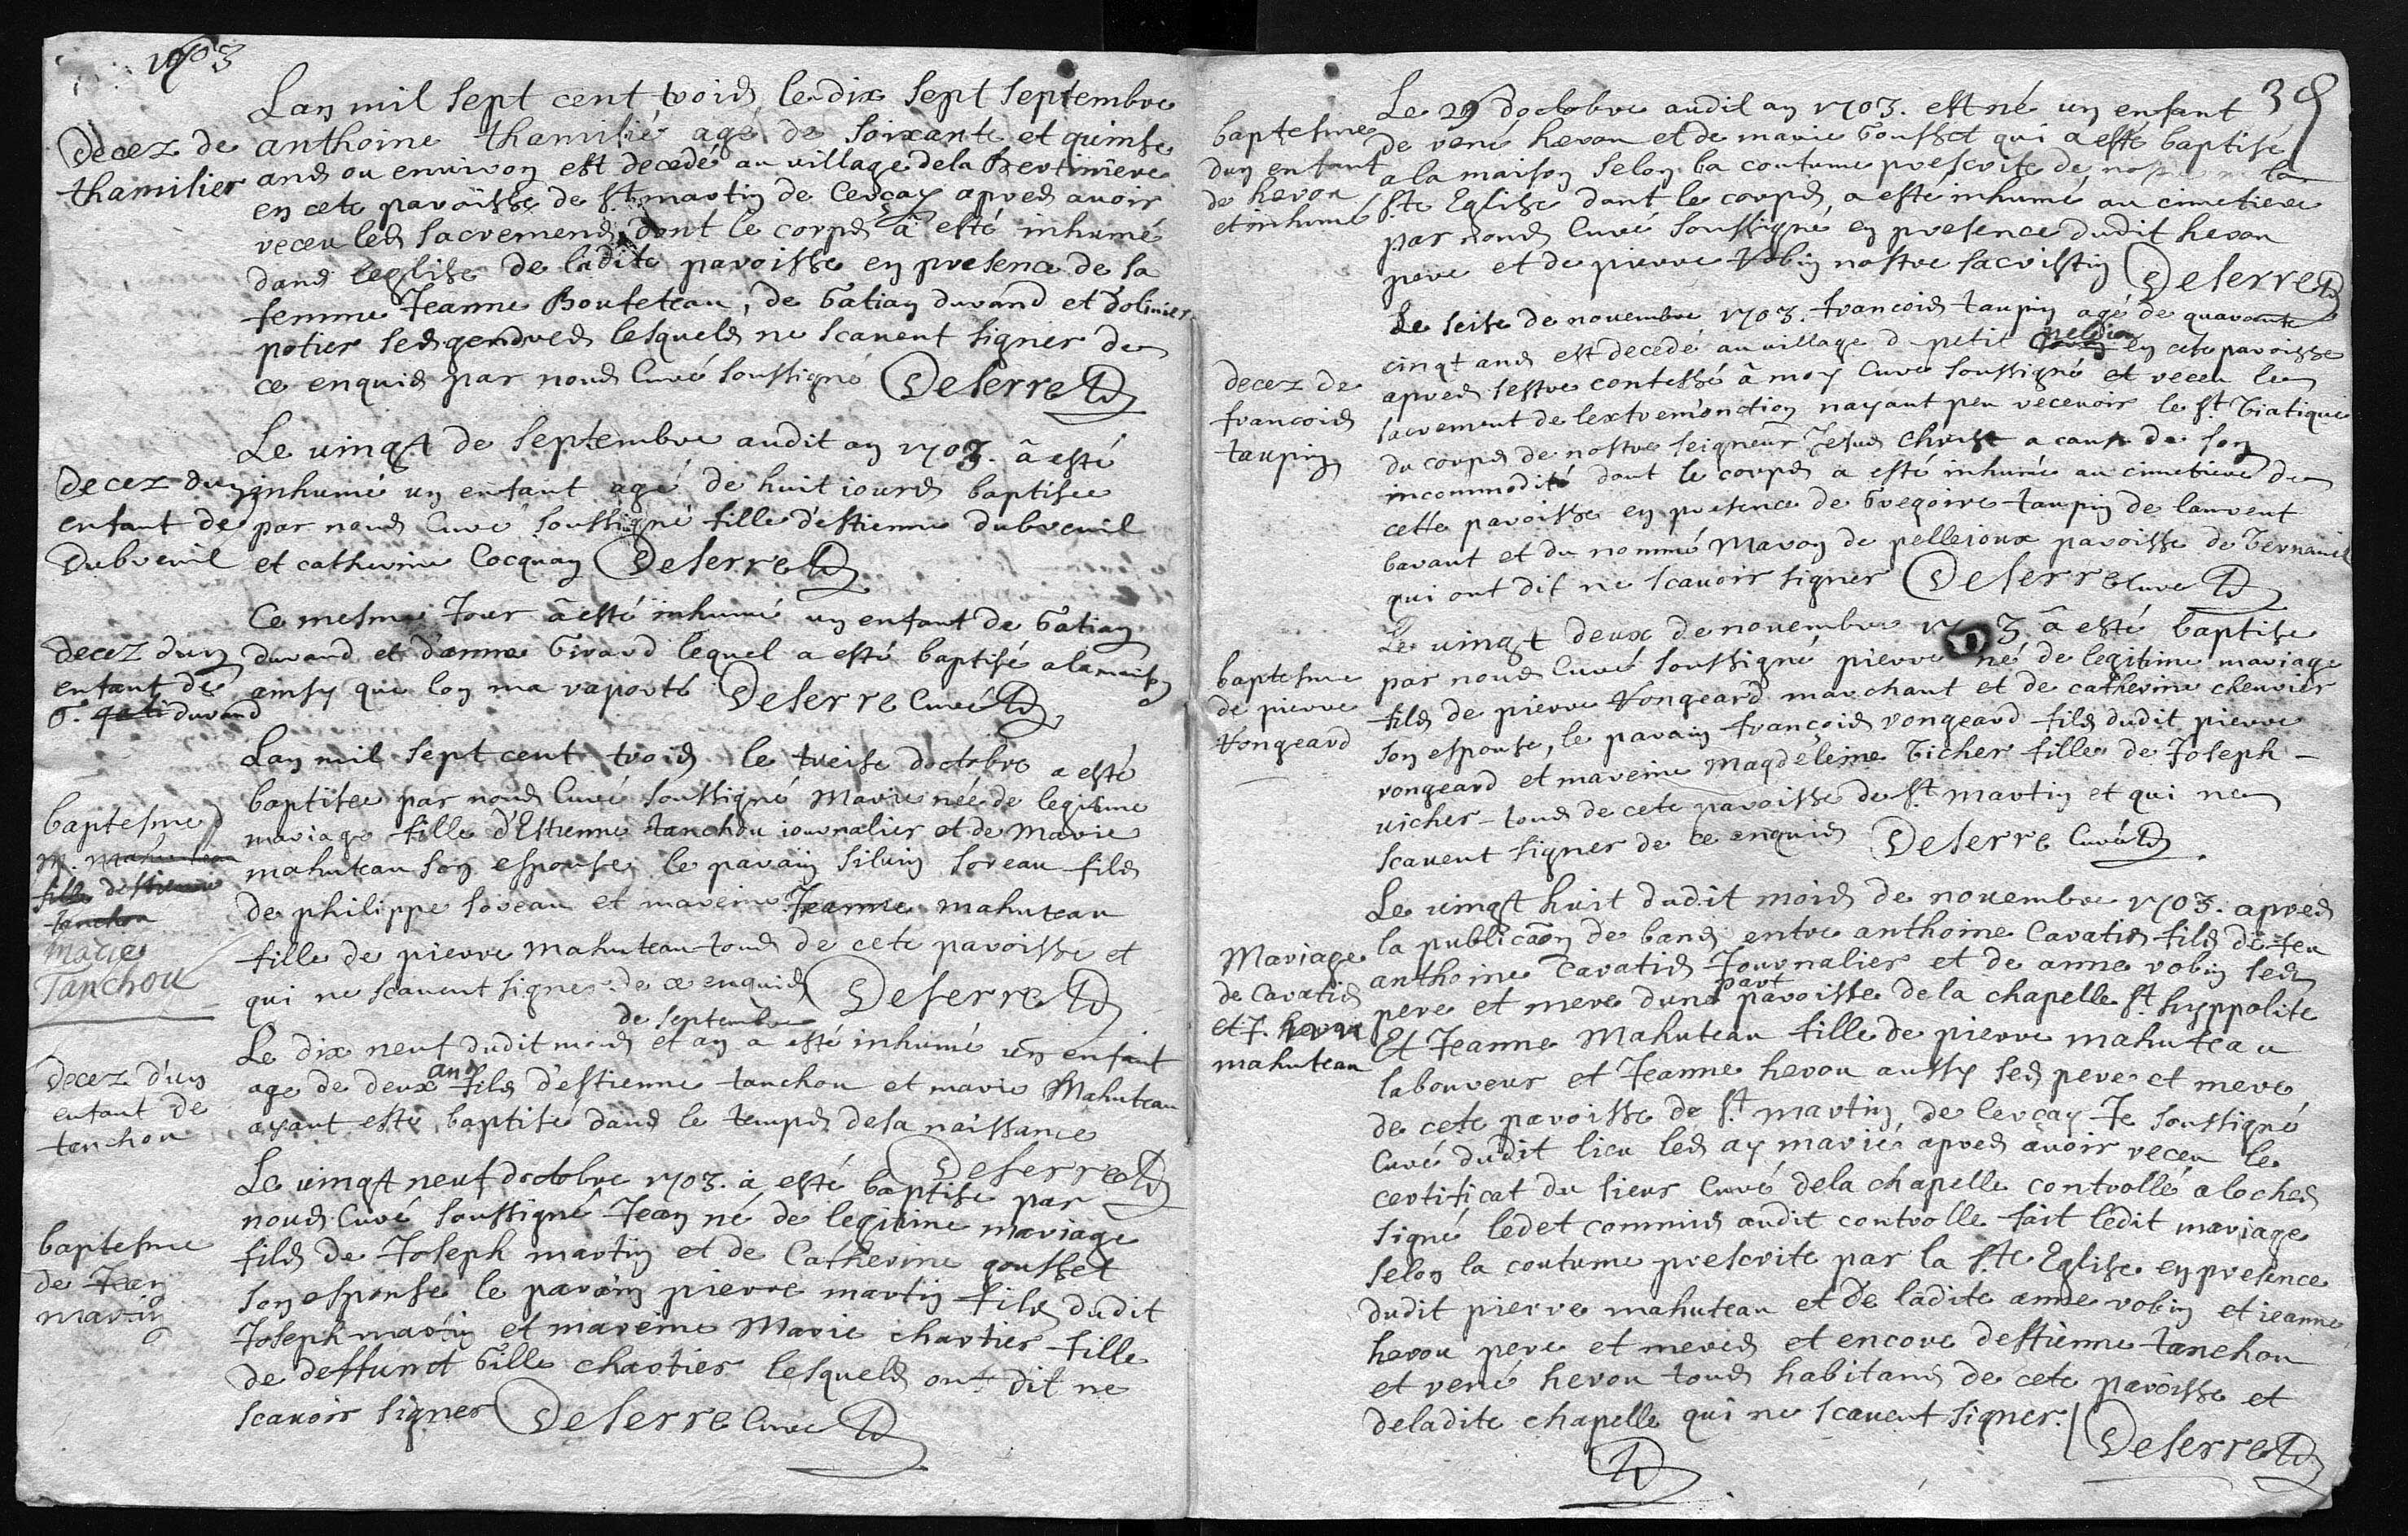 1703
Lan mil sept cent trois le dix sept septembre
Decez de
thamilier
anthoine thamilié agé de soixante et quinse
ans ou environ est decedé au village dela Bertiniere
en cete paroisse de St martin de Cerçay apres avoir
receu les sacremens, dont le corps a esté inhumé
dans leglise de ladite paroisse en presence de sa
femme Jeanne Bouteteau, de Gatian durand et dolivier
potier ses gendres lesquels ne scavent signer de
ce enquis par nous Curé soussigné Deserre
Le vingt de septembre audit an 1703. a esté
Decez dun
enfant de
Dubreuil
inhumé un enfant agé de huit iours baptisée
par nous Curé soussigné fille destienne dubreuil
et catherine Cocquay Deserre
Ce mesme Jour a esté inhumé un enfant de Gatian
decez dun
enfant de
G. durand
durand et danne Girard lequel a esté baptisé a la maison
ainsy que lon ma raporté Deserre Curé
Lan mil sept cent trois le treise doctobre a esté
baptesme
m. mahuteau
fille destienne
tanchou
marie
Tanchou
baptisée par nous Curé soussigné Marie née de legitime
mariage fille d'Estienne tanchou iournalier et de Marie
mahuteau son espouse, le parain silvin soreau fils
de philippe soreau et mareine Jeanne mahuteau
fille de pierre mahuteau tous de cete paroisse et
qui ne scavent signer de ce enquis Deserre
de septembre
Le dix neuf dudit mois et an a esté inhumé un enfant
decez d'un
enfant de
tanchou
age de deux ans fils d'estienne tanchou et marie Mahuteau
ayant esté baptisé dans le temps desa naissance
Deserre
Le vingt neuf doctobre 1703. a esté baptisé par
baptesme
de Jean
martin
nous Curé soussigné Jean né de legitime mariage
fils de Joseph martin et de Catherine gousset
son espouse le parain pierre martin fils dudit
Joseph martin et mareine Marie chartier fille
de deffunct Gille chartier lesquels ont dit ne
scavoir signer Deserre Curé
35
Le 29 doctobre audit an 1703. est né un enfant
baptesme
dun enfant
de herou
et inhumé
de rené herou et de marie Gousset qui a esté baptisé
a la maison selon la coutume prescrite de la
Ste Eglise dont le corps a esté inhumé au cimetiere
par nous Curé soussigné en presence dudit herou
pere et de pierre Robin nostre sacristin Deserre
Le seise de novembre 1703. francois taupin agé de quarante
decez de
francois
taupin
cinqt ans est decedé au village d petit en cete paroisse
apres sestre confessé a moy Curé soussigné et receu le
sacrement de lextremonction nayant peu recevoir le St Viatique
du corps de nostre seigneur Jesus Christ a cause de son
incommodité dont le corps a esté inhumé au cimetiere de
cette paroisse en presence de Gregoire taupin de laurent
bavant et du nommé Maron de pellejoux paroisse de Verneuil
qui ont dit ne scavoir signer Deserre Curé
Le vingt deux de novembre 1703 a esté baptisé
baptesme
de pierre
Rongeard
par nous Curé soussigné pierre né de legitime mariage
fils de pierre Rongeard marchant et de catherine chenvier
son espouse, le parain françois rongeard fils dudit pierre
rongeard et mareine Magdeleine Vicher fille de Joseph
vicher tous de cete paroisse de St martin et qui ne
scavent signer de ce enquis Deserre Curé
Le vingt huit dudit mois de novembre 1703. apres
Mariage
de Caratis
et J. herou
mahuteau
la publicaon de bans entre anthoine Caratis fils de feu
anthoine Caratis Journalier et de anne robin ses
pere et mere dune part paroisse dela chapelle St hyppolite
Et Jeanne Mahuteau fille de pierre mahuteau
laboureur et Jeanne herou aussy ses pere et mere
de cete paroisse de St martin de Cerçay Je soussigné
Curé dudit lieu les ay mariés apres avoir receu le
certificat du sieur Curé dela chapelle controllé a loches
signé ledet commis audit controlle fait ledit mariage
selon la coutume prescrite par la Ste Eglise en presence
dudit pierre mahuteau et de ladite anne robin et jeanne
herou pere et meres et encore destienne tanchou
et rené herou tous habitans de cete paroisse et
deladite chapelle qui ne scavent signer. Deserre